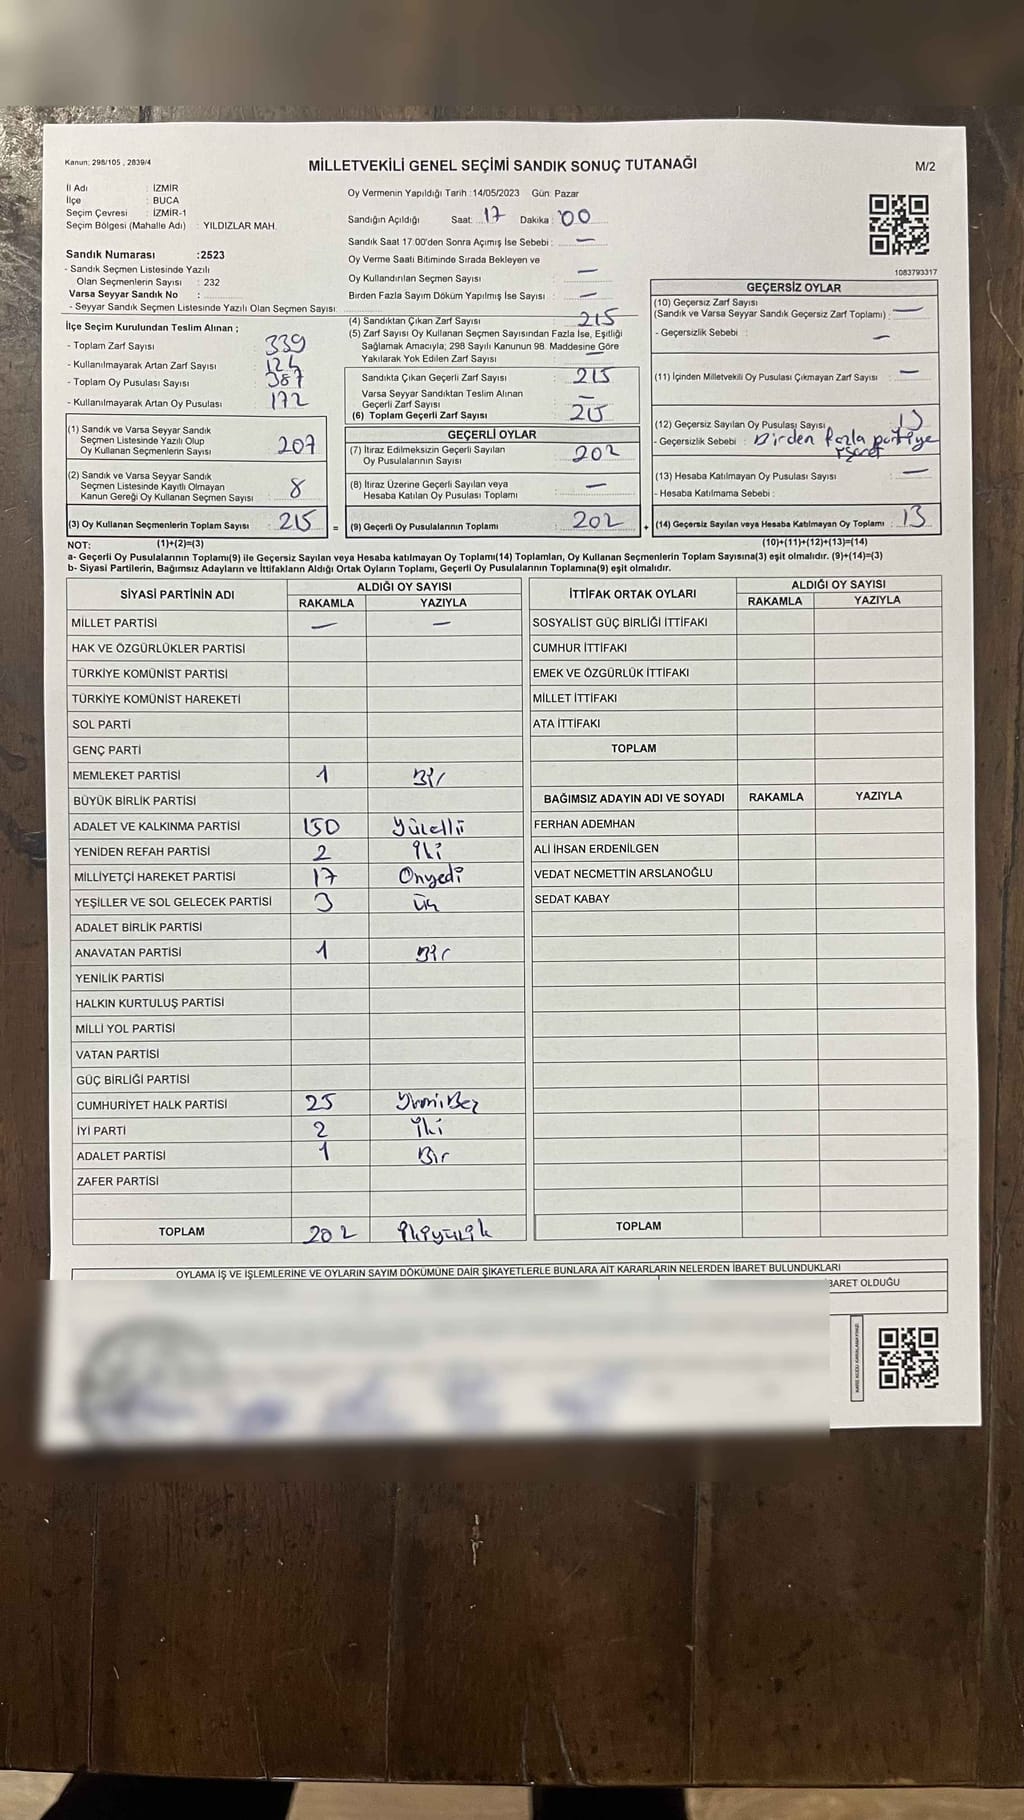 Kanun: 298/105 , 2839/4
MİLLETVEKİLİ GENEL SEÇİMİ SANDIK SONUÇ TUTANAĞI
M/2
İl Adı : İZMİR
İlçe : BUCA
Seçim Çevresi : İZMİR-1
Seçim Bölgesi (Mahalle Adı) : YILDIZLAR MAH.
Oy Vermenin Yapıldığı Tarih :14/05/2023 Gün: Pazar
Sandığın Açıldığı Saat: 17 Dakika : 00
Sandık Saat 17.00'den Sonra Açımış İse Sebebi : —
Oy Verme Saati Bitiminde Sırada Bekleyen ve
Oy Kullandırılan Seçmen Sayısı —
Birden Fazla Sayım Döküm Yapılmış İse Sayısı : —
Sandık Numarası :2523
- Sandık Seçmen Listesinde Yazılı
Olan Seçmenlerin Sayısı : 232
Varsa Seyyar Sandık No :
- Seyyar Sandık Seçmen Listesinde Yazılı Olan Seçmen Sayısı:
İlçe Seçim Kurulundan Teslim Alınan ;
- Toplam Zarf Sayısı 339
- Kullanılmayarak Artan Zarf Sayısı 124
- Toplam Oy Pusulası Sayısı 387
- Kullanılmayarak Artan Oy Pusulası 172
(1) Sandık ve Varsa Seyyar Sandık
Seçmen Listesinde Yazılı Olup
Oy Kullanan Seçmenlerin Sayısı 207
(2) Sandık ve Varsa Seyyar Sandık
Seçmen Listesinde Kayıtlı Olmayan
Kanun Gereği Oy Kullanan Seçmen Sayısı 8
(3) Oy Kullanan Seçmenlerin Toplam Sayısı 215 =
(4) Sandıktan Çıkan Zarf Sayısı 215
(5) Zarf Sayısı Oy Kullanan Seçmen Sayısından Fazla İse, Eşitliği
Sağlamak Amacıyla; 298 Sayılı Kanunun 98. Maddesine Göre
Yakılarak Yok Edilen Zarf Sayısı —
Sandıkta Çıkan Geçerli Zarf Sayısı 215
Varsa Seyyar Sandıktan Teslim Alınan
Geçerli Zarf Sayısı —
(6) Toplam Geçerli Zarf Sayısı 215
GEÇERLİ OYLAR
(7) İtiraz Edilmeksizin Geçerli Sayılan
Oy Pusulalarının Sayısı 202
(8) İtiraz Üzerine Geçerli Sayılan veya
Hesaba Katılan Oy Pusulası Toplamı —
(9) Geçerli Oy Pusulalarının Toplamı 202 +
1083793317
GEÇERSİZ OYLAR
(10) Geçersiz Zarf Sayısı
(Sandık ve Varsa Seyyar Sandık Geçersiz Zarf Toplamı) : —
- Geçersizlik Sebebi : —
(11) İçinden Milletvekili Oy Pusulası Çıkmayan Zarf Sayısı : —
(12) Geçersiz Sayılan Oy Pusulası Sayısı 13
- Geçersizlik Sebebi : Birden fazla partiye
işaret
(13) Hesaba Katılmayan Oy Pusulası Sayısı —
- Hesaba Katılmama Sebebi :
(14) Geçersiz Sayılan veya Hesaba Katılmayan Oy Toplamı : 13
NOT: (1)+(2)=(3)
(10)+(11)+(12)+(13)=(14)
a- Geçerli Oy Pusulalarının Toplamı(9) ile Geçersiz Sayılan veya Hesaba katılmayan Oy Toplamı(14) Toplamları, Oy Kullanan Seçmenlerin Toplam Sayısına(3) eşit olmalıdır. (9)+(14)=(3)
b- Siyasi Partilerin, Bağımsız Adayların ve İttifakların Aldığı Ortak Oyların Toplamı, Geçerli Oy Pusulalarının Toplamına(9) eşit olmalıdır.
SİYASİ PARTİNİN ADI
ALDIĞI OY SAYISI
RAKAMLA YAZIYLA
MİLLET PARTİSİ — —
HAK VE ÖZGÜRLÜKLER PARTİSİ
TÜRKİYE KOMÜNİST PARTİSİ
TÜRKİYE KOMÜNİST HAREKETİ
SOL PARTİ
GENÇ PARTİ
MEMLEKET PARTİSİ 1 Bir
BÜYÜK BİRLİK PARTİSİ
ADALET VE KALKINMA PARTİSİ 150 Yüzelli
YENİDEN REFAH PARTİSİ 2 İki
MİLLİYETÇİ HAREKET PARTİSİ 17 Onyedi
YEŞİLLER VE SOL GELECEK PARTİSİ 3 Üç
ADALET BİRLİK PARTİSİ
ANAVATAN PARTİSİ 1 Bir
YENİLİK PARTİSİ
HALKIN KURTULUŞ PARTİSİ
MİLLİ YOL PARTİSİ
VATAN PARTİSİ
GÜÇ BİRLİĞİ PARTİSİ
CUMHURİYET HALK PARTİSİ 25 Yirmibeş
İYİ PARTİ 2 İki
ADALET PARTİSİ 1 Bir
ZAFER PARTİSİ
TOPLAM 202 İkiyüziki
İTTİFAK ORTAK OYLARI
ALDIĞI OY SAYISI
RAKAMLA YAZIYLA
SOSYALİST GÜÇ BİRLİĞİ İTTİFAKI
CUMHUR İTTİFAKI
EMEK VE ÖZGÜRLÜK İTTİFAKI
MİLLET İTTİFAKI
ATA İTTİFAKI
TOPLAM
BAĞIMSIZ ADAYIN ADI VE SOYADI RAKAMLA YAZIYLA
FERHAN ADEMHAN
ALİ İHSAN ERDENİLGEN
VEDAT NECMETTİN ARSLANOĞLU
SEDAT KABAY
TOPLAM
OYLAMA İŞ VE İŞLEMLERİNE VE OYLARIN SAYIM DÖKÜMÜNE DAİR ŞİKAYETLERLE BUNLARA AİT KARARLARIN NELERDEN İBARET BULUNDUKLARI
İBARET OLDUĞU